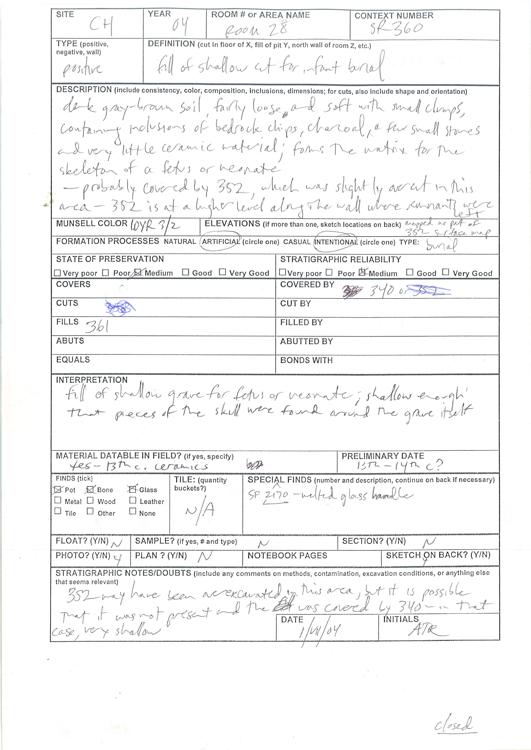 SITE CH YEAR 04 ROOM # or AREA NAME Room 28 CONTEXT NUMBER SR360
TYPE (positive, negative, wall) positive DEFINITION (cut in floor of X, fill of pit Y, north wall of room Z, etc.) fill of shallow cut for infant burial
DESCRIPTION (include consistency, color, composition, inclusions, dimensions; for cuts, also include shape and orientation)
dark gray-brown soil, fairly loose and soft with small clumps,
containing inclusions of bedrock chips, charcoal, a few small stones
and very little ceramic material; forms the matrix for the
skeleton of a fetus or neonate
- probably covered by 352, which was slightly overcut in this
area - 352 is at a higher level along the wall where remnants were
left
MUNSELL COLOR 10YR 3/2 ELEVATIONS (if more than one, sketch locations on back) mapped as part of 352 surface map
FORMATION PROCESSES NATURAL ARTIFICIAL (circle one) CASUAL INTENTIONAL (circle one) TYPE: burial
STATE OF PRESERVATION STRATIGRAPHIC RELIABILITY
Very poor Poor Medium Good Very Good Very poor Poor Medium Good Very Good
COVERS COVERED BY 340 or 352
CUTS CUT BY
FILLS 361 FILLED BY
ABUTS ABUTTED BY
EQUALS BONDS WITH
INTERPRETATION
fill of shallow grave for fetus or neonate; shallow enough
that pieces of the skull were found around the grave itself
MATERIAL DATABLE IN FIELD? (if yes, specify) PRELIMINARY DATE
yes - 13th c. ceramics 13th - 14th c?
FINDS (tick) TILE: (quantity buckets?) SPECIAL FINDS (number and description, continue on back if necessary)
Pot Bone Glass N/A SF 2170 - melted glass handle
Metal Wood Leather
Tile Other None
FLOAT? (Y/N) N SAMPLE? (if yes, # and type) N SECTION? (Y/N) N
PHOTO? (Y/N) y PLAN ? (Y/N) N NOTEBOOK PAGES SKETCH ON BACK? (Y/N) y
STRATIGRAPHIC NOTES/DOUBTS (include any comments on methods, contamination, excavation conditions, or anything else
that seems relevant)
352 may have been overexcavated in this area, but it is possible
that it was not present and the was covered by 340 - in that
case, very shallow
DATE 1/VII/04 INITIALS ATR
closed